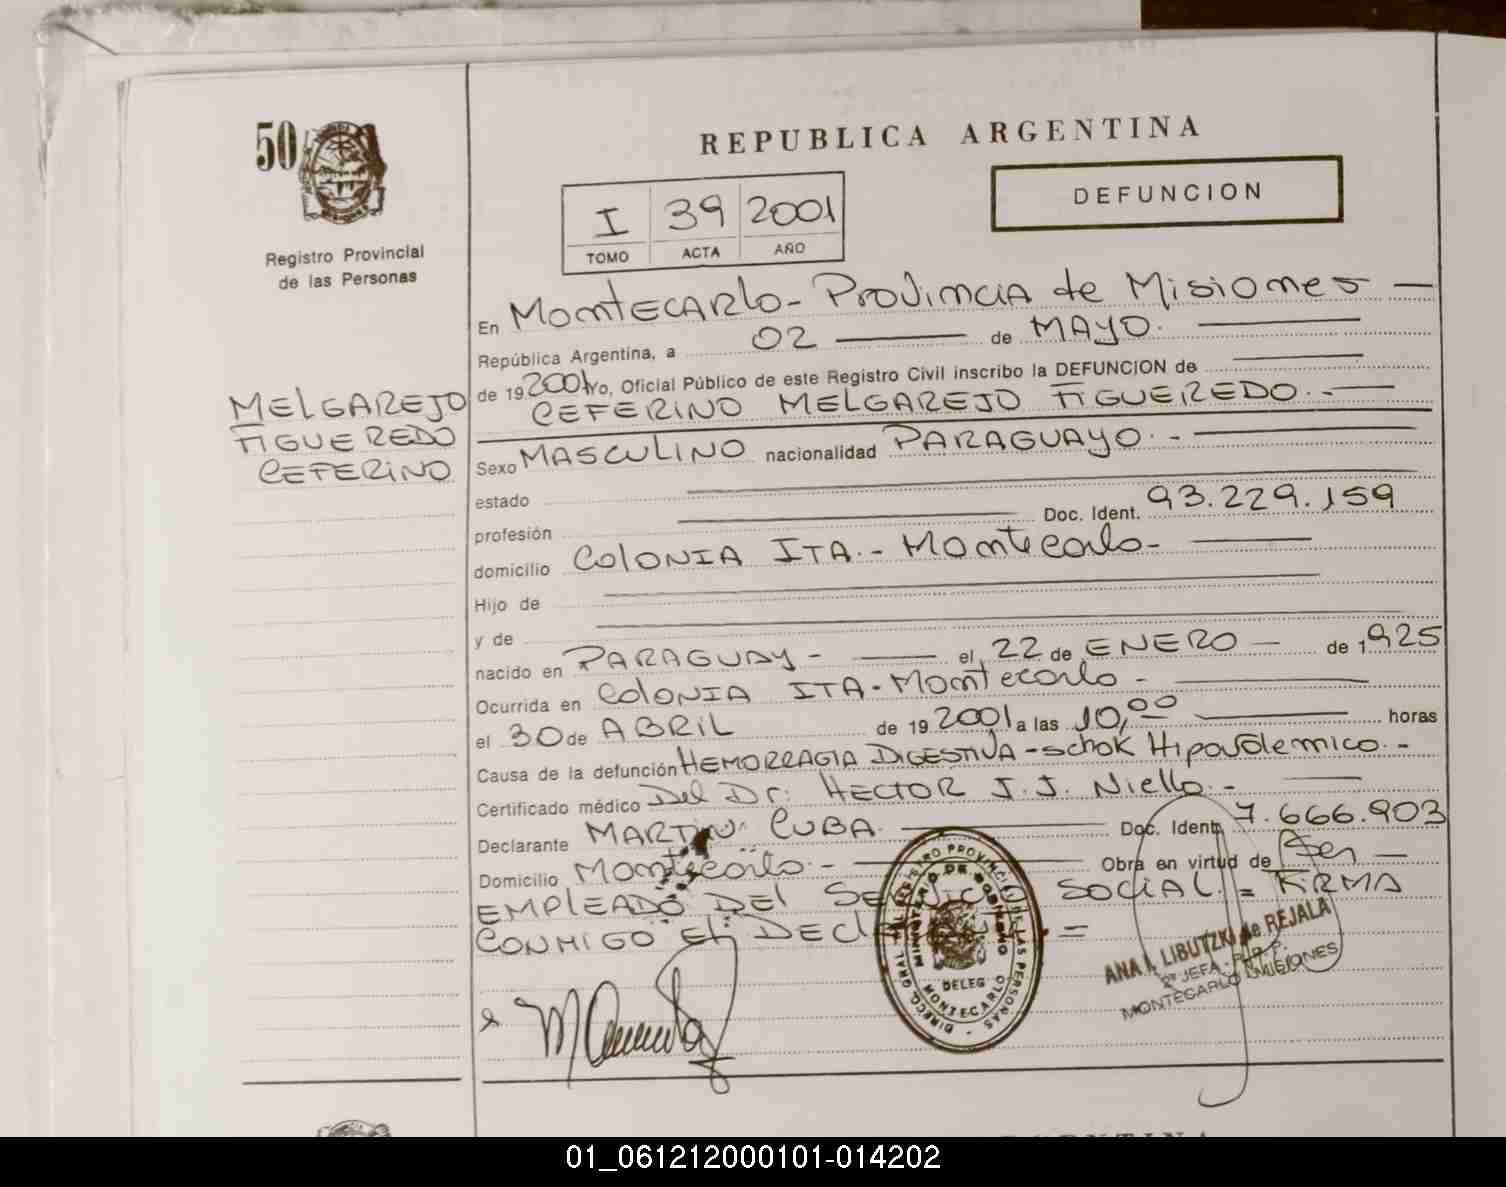 50
Registro Provincial
de las Personas
REPUBLICA ARGENTINA
DEFUNCION
I 39 2001
TOMO ACTA AÑO
MELGAREJO
FIGUEREDO
CEFERINO
En MONTECARLO - PROVINCIA de MISIONES —
República Argentina, a 02 — de MAYO. —
de 19 2001 yo, Oficial Público de este Registro Civil inscribo la DEFUNCION de —
CEFERINO MELGAREJO FIGUEREDO. - —
Sexo MASCULINO nacionalidad PARAGUAYO. - —
estado —
profesión — Doc. Ident. 93.229.159
domicilio COLONIA ITA. - Montecarlo - —
Hijo de —
y de —
nacido en PARAGUAY - — el 22 de ENERO — de 1925
Ocurrida en COLONIA ITA - Montecarlo - —
el 30 de ABRIL de 19 2001 a las 10,00 — horas
Causa de la defunción HEMORRAGIA DIGESTIVA - schok Hipovolemico. -
Certificado médico Del Dr: HECTOR J. J. Niello. - —
Declarante MARTIN CUBA. — Doc. Ident. 7.666.903
Domicilio Montecarlo. - — Obra en virtud de Ser —
EMPLEADO DEL SERVICIO SOCIAL. = FIRMA
CONMIGO EL DECLARANTE. =
DIRECC. GRAL. DEL REGISTRO PROVINCIAL DE LAS PERSONAS
MINISTERIO DE GOBIERNO
DELEG
MONTECARLO
ANA I. LIBUTZKI de REJALA
2ª JEFA - R. P. P.
MONTECARLO - MISIONES
01_061212000101-014202